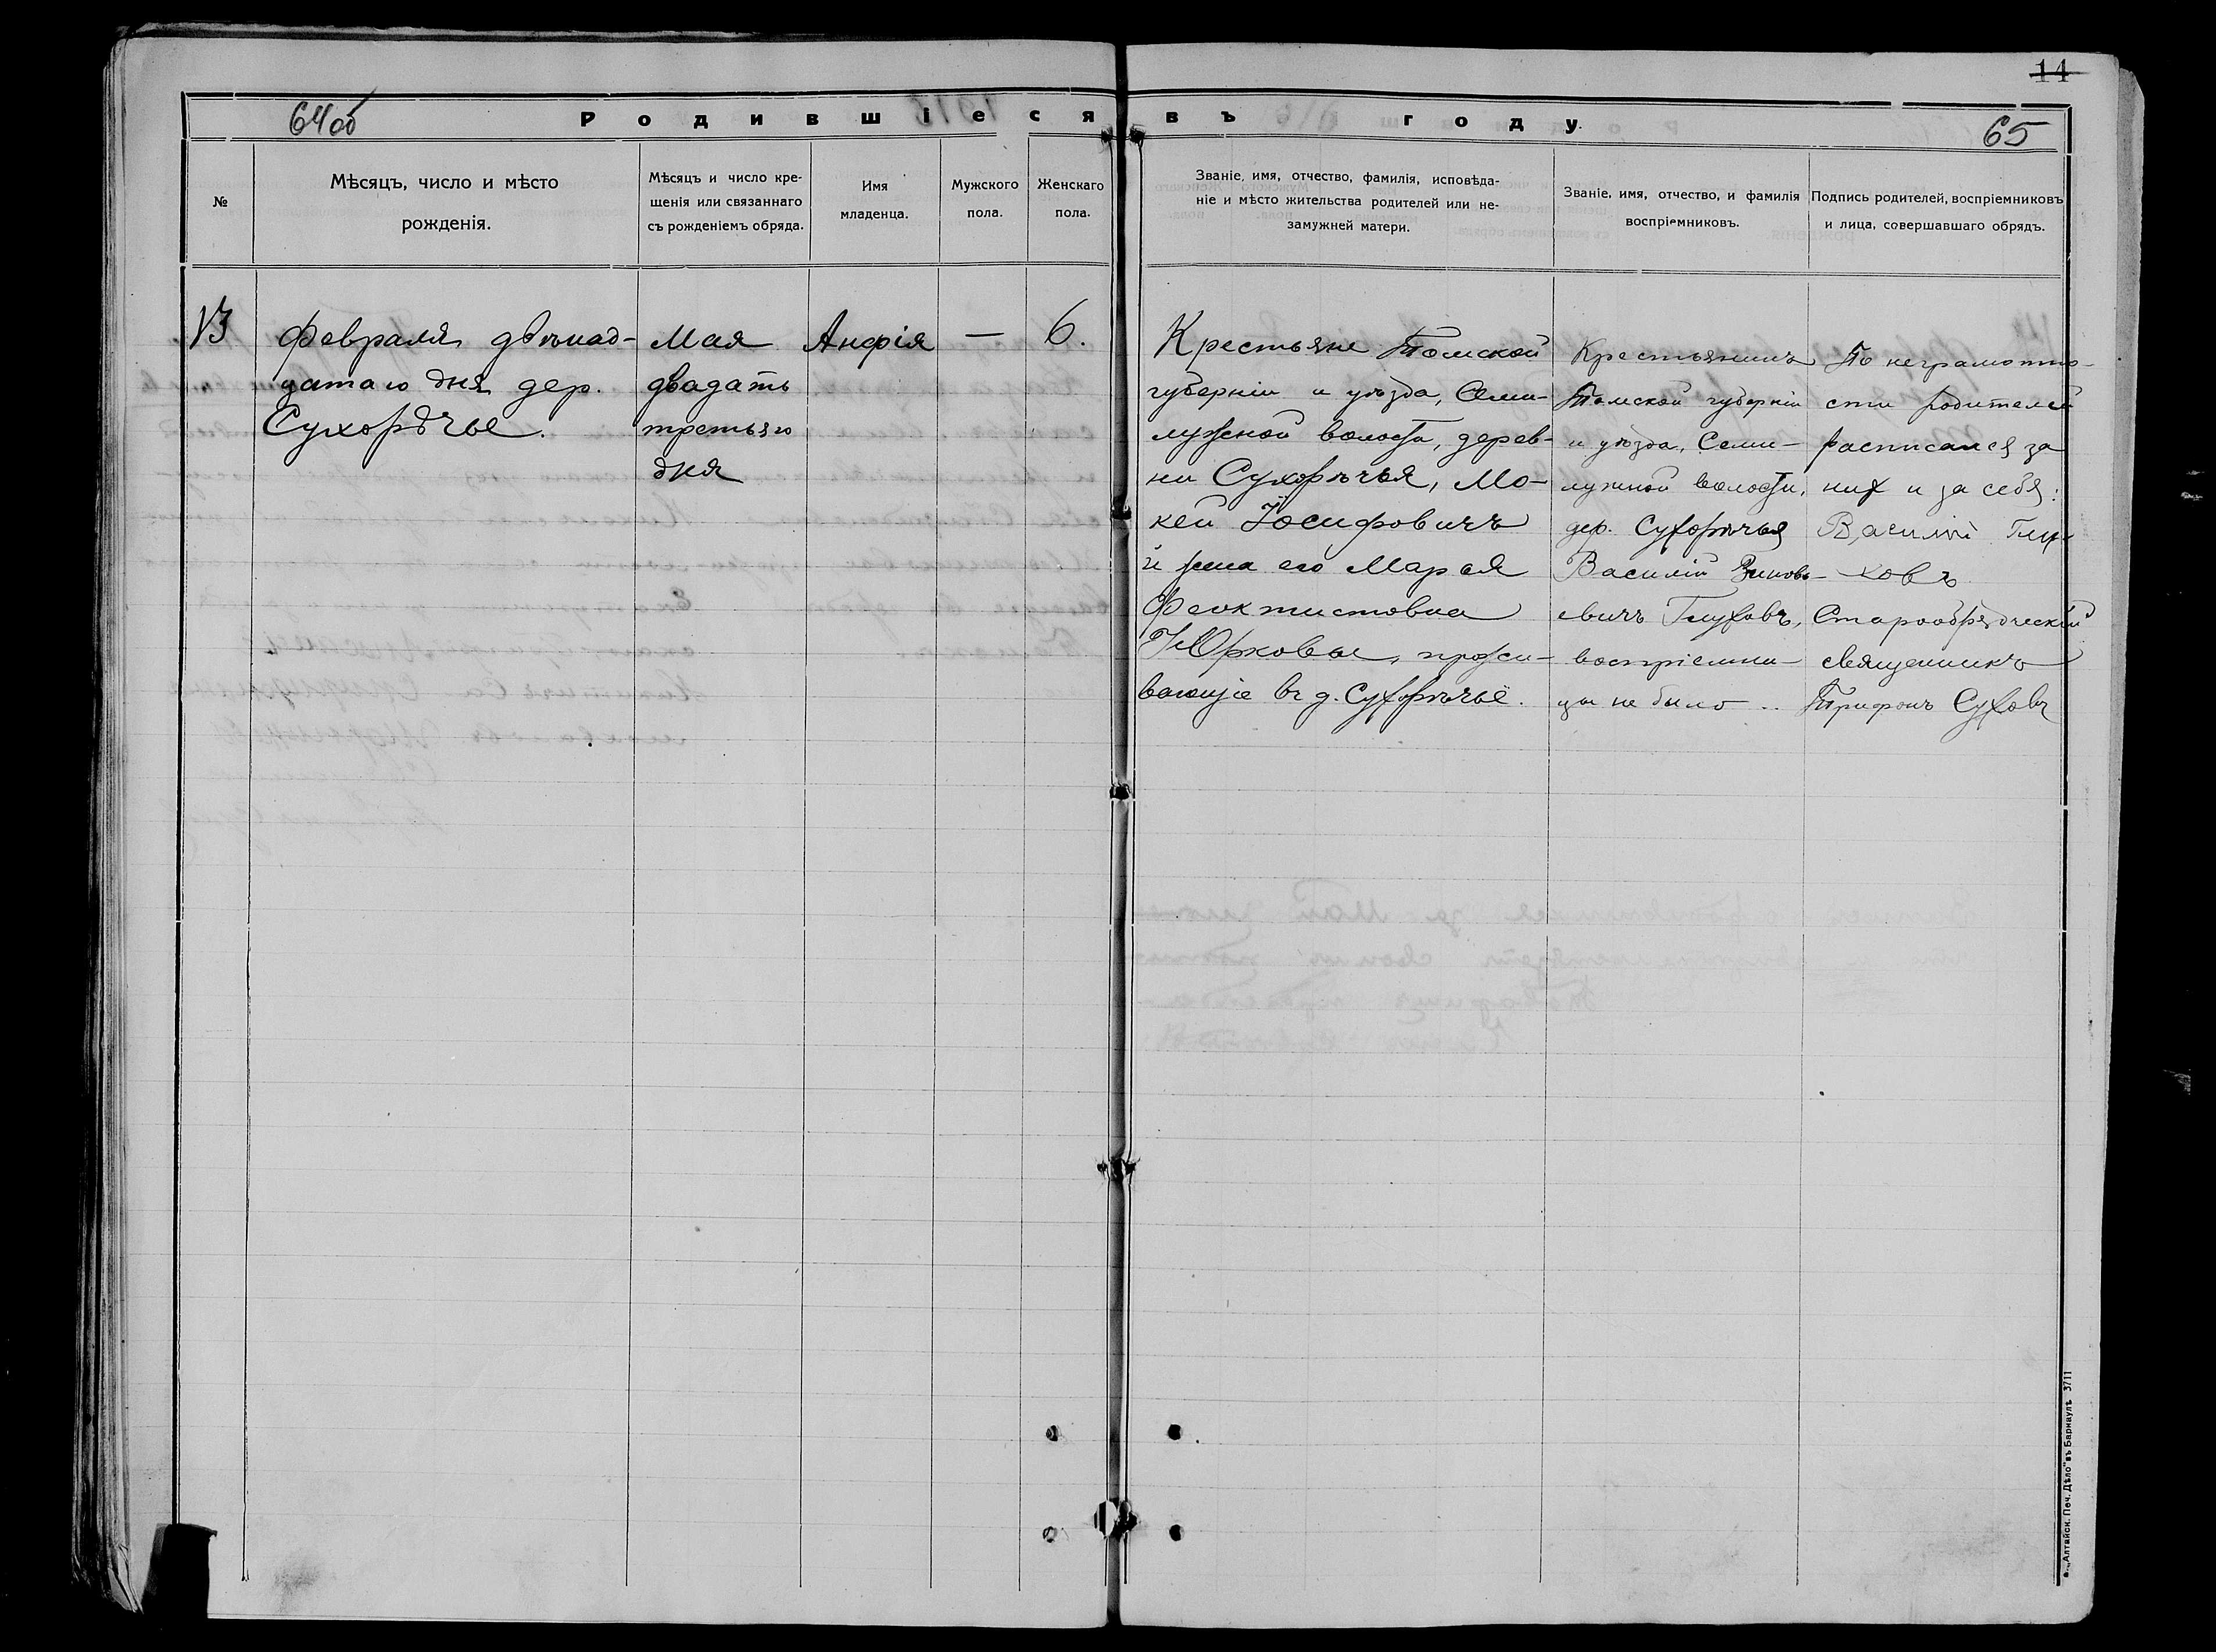 14
64об
Родившіеся въ году.
65
№
Мѣсяцъ, число и мѣсто
рожденія.
Мѣсяцъ и число кре-
щенія или связаннаго
съ рожденіемъ обряда.
Имя
младенца.
Мужского
пола.
Женскаго
пола.
Званіе, имя, отчество, фамилія, исповѣда-
ніе и мѣсто жительства родителей или не-
замужней матери.
Званіе, имя, отчество, и фамилія
воспріемниковъ.
Подпись родителей, воспріемниковъ
и лица, совершавшаго обрядъ.
Февраля двѣнад-
цатаго дня дер.
Сухорѣчье.
Мая
двадать
третьяго
дня
Анфія
—
6.
Крестьяне Томской
губерніи и уѣзда, Семи-
лужной волости, дерев-
ни Сухорѣчья, Мо-
кей Іосифовичъ
и жена его Марья
Феоктистовна
Юрковы, прожи-
вающіе въ д. Сухорѣчье.
Крестьянинъ
Томской губерніи
и уѣзда, Семи-
лужной волости,
дер. Сухорѣчья
Василій Зиновь-
евичъ Глуховъ,
воспріемни-
цы не было
По неграмотно-
сти родителей
расписался за
них и за себя:
Василій Глу-
ховъ
Старообрядческій
священникъ
Трифонъ Суховъ
„Алтайск. Печ. Дѣло" въ Барнаулѣ 3711